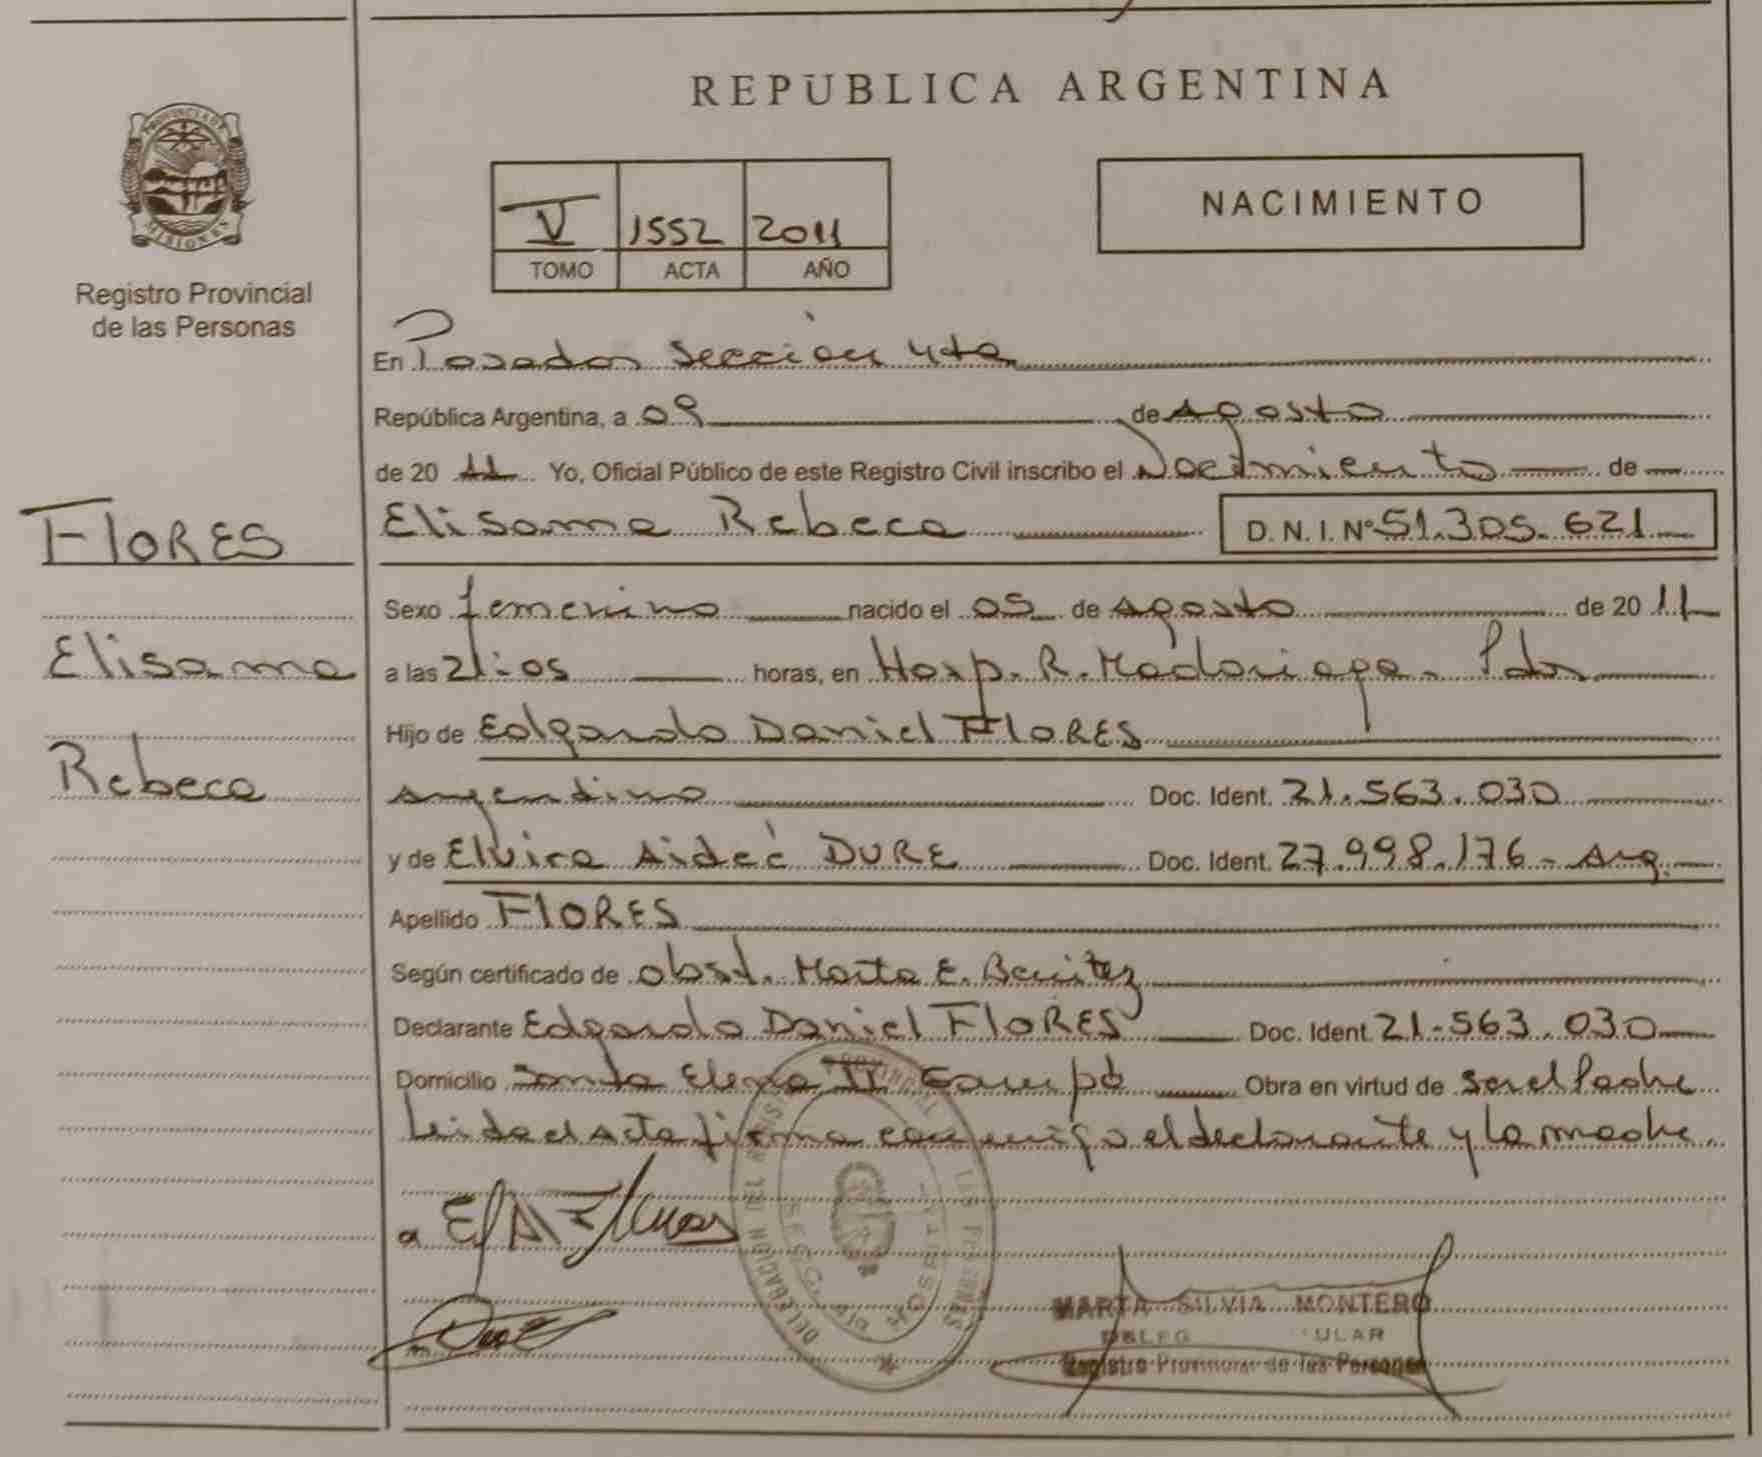 REPUBLICA ARGENTINA
PROVINCIA DE
MISIONES
Registro Provincial
de las Personas
V 1552 2011
TOMO ACTA AÑO
NACIMIENTO
En Posadas Sección 4ta
República Argentina, a 09 de Agosto
de 20 11 Yo, Oficial Público de este Registro Civil inscribo el Nacimiento de
Elisama Rebeca D. N. I. Nº 51.305.621
FLORES
Elisama
Rebeca
Sexo femenino nacido el 05 de Agosto de 20 11
a las 21:05 horas, en Hosp. R. Madariaga - Pdas
Hijo de Edgardo Daniel FLORES
Argentino Doc. Ident. 21.563.030
y de Elvira Aideé DURE Doc. Ident. 27.998.176 - Arg.
Apellido FLORES
Según certificado de obst. Marta E. Benitez
Declarante Edgardo Daniel FLORES Doc. Ident. 21.563.030
Domicilio Santa Elena II Garupá Obra en virtud de ser el Padre
Leida el Acta firma conmigo el declarante y la madre
DELEGACION DEL REGISTRO PROVINCIAL DE LAS PERSONAS
SECCION 4a POSADAS
MARTA SILVIA MONTERO
Registro Provincial de las Personas